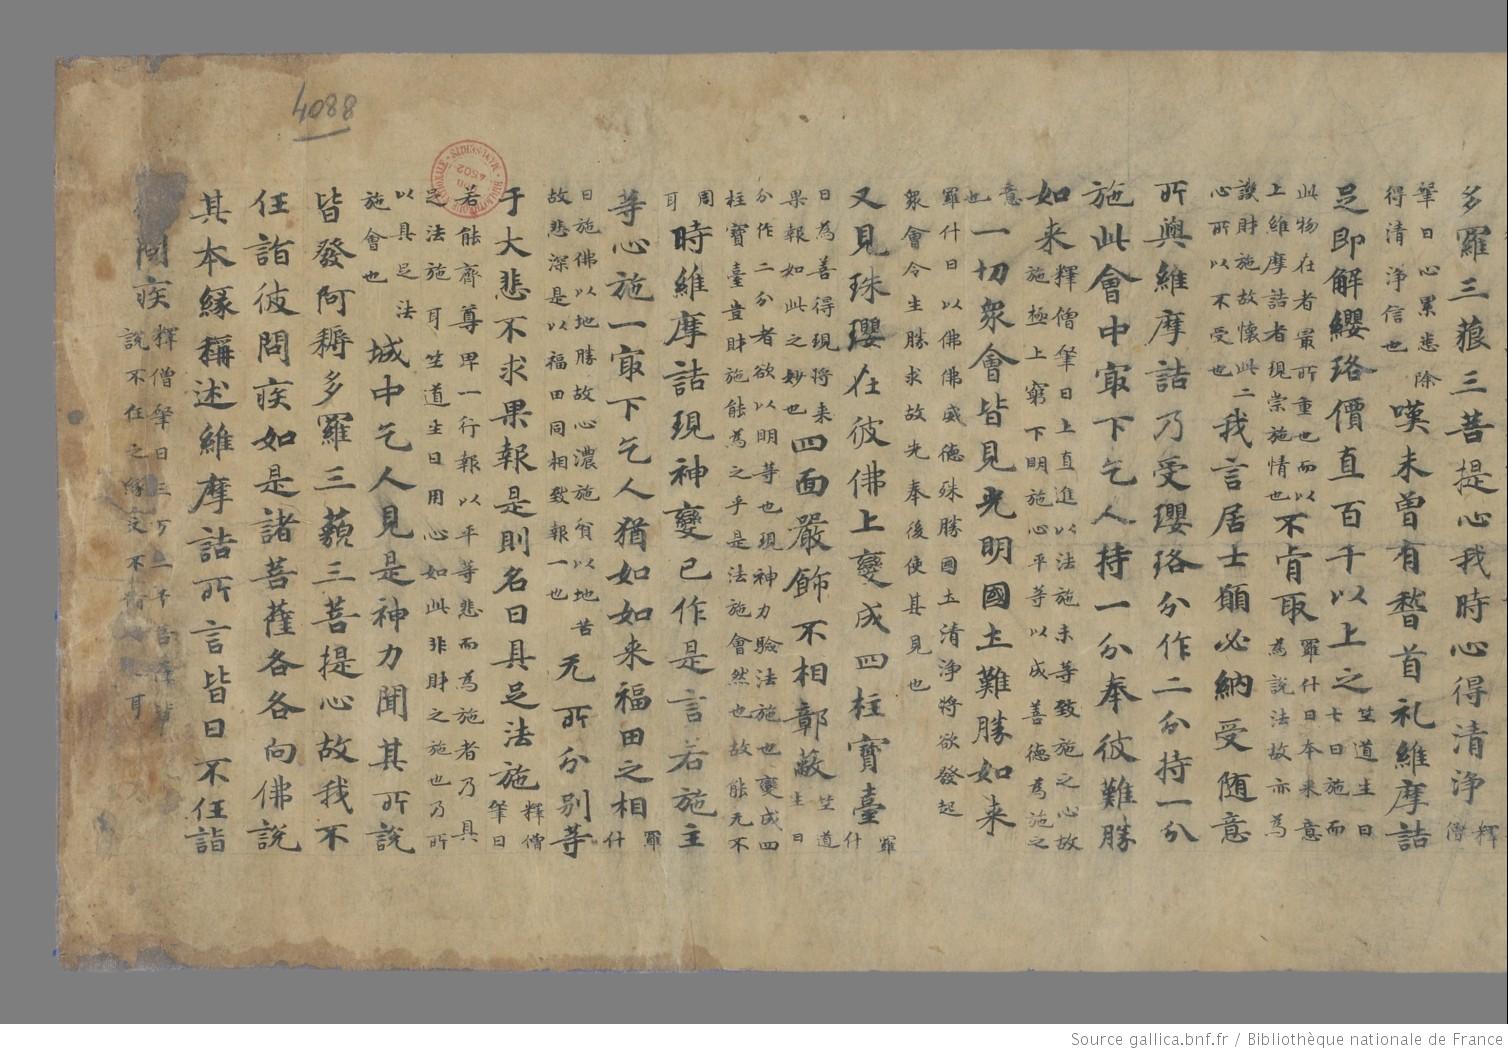 多羅三藐三菩提心我時心得清淨釋
僧
肇曰心累悉除
得清淨信也
嘆未曽有稽首礼維摩詰
足即解纓珞價直百千以上之竺道生曰
七日施而
此物在者最所重也而以
上維摩詰者現崇施情也
不肯取羅什曰本来意
為說法故亦為
談財施故懐此二
心所以不受也
我言居士願必納受随意
所與維摩詰乃受瓔珞分作二分持一分
施此會中冣下乞人持一分奉彼難勝
如来釋僧肇曰上直進以法施未等致施之心故
施極上窮下明施心平等以成善德為施之
意
也
一切衆會皆見光明國土難勝如来
羅什曰以佛佛威德殊勝國土清淨將欲發起
衆會令生勝求故光奉後使其見也
又見珠瓔在彼佛上變成四柱寶臺羅
什
曰為善得現将来
果報如此之妙也
四面嚴飾不相鄣蔽竺道
生曰
分作二分者欲以明等也現神力驗法施也變成四
柱寶臺豈財施能為之乎是法施會然也故能无不
周
耳
時維摩詰現神變已作是言若施主
等心施一冣下乞人猶如如来福田之相羅
什
曰施佛以地勝故心濃施貧以地苦
故悲深是以福田同相致報一也
无所分別等
于大悲不求果報是則名曰具足法施釋僧
肇曰
若能齊尊卑一行報以平等悲而為施者乃具
足法施耳竺道生曰用心如此非財之施也乃所
以具足法
施會也
城中乞人見是神力聞其所說
皆發阿耨多羅三藐三菩提心故我不
任詣彼問疾如是諸菩薩各各向佛說
其本緣稱述維摩詰所言皆曰不任詣
問疾釋僧肇曰三万二千菩薩皆
說不任之緣文不耳
4088
BIBLIOTHÈQUE NATIONALE MANUSCRITS
4502
Source gallica.bnf.fr / Bibliothèque nationale de France